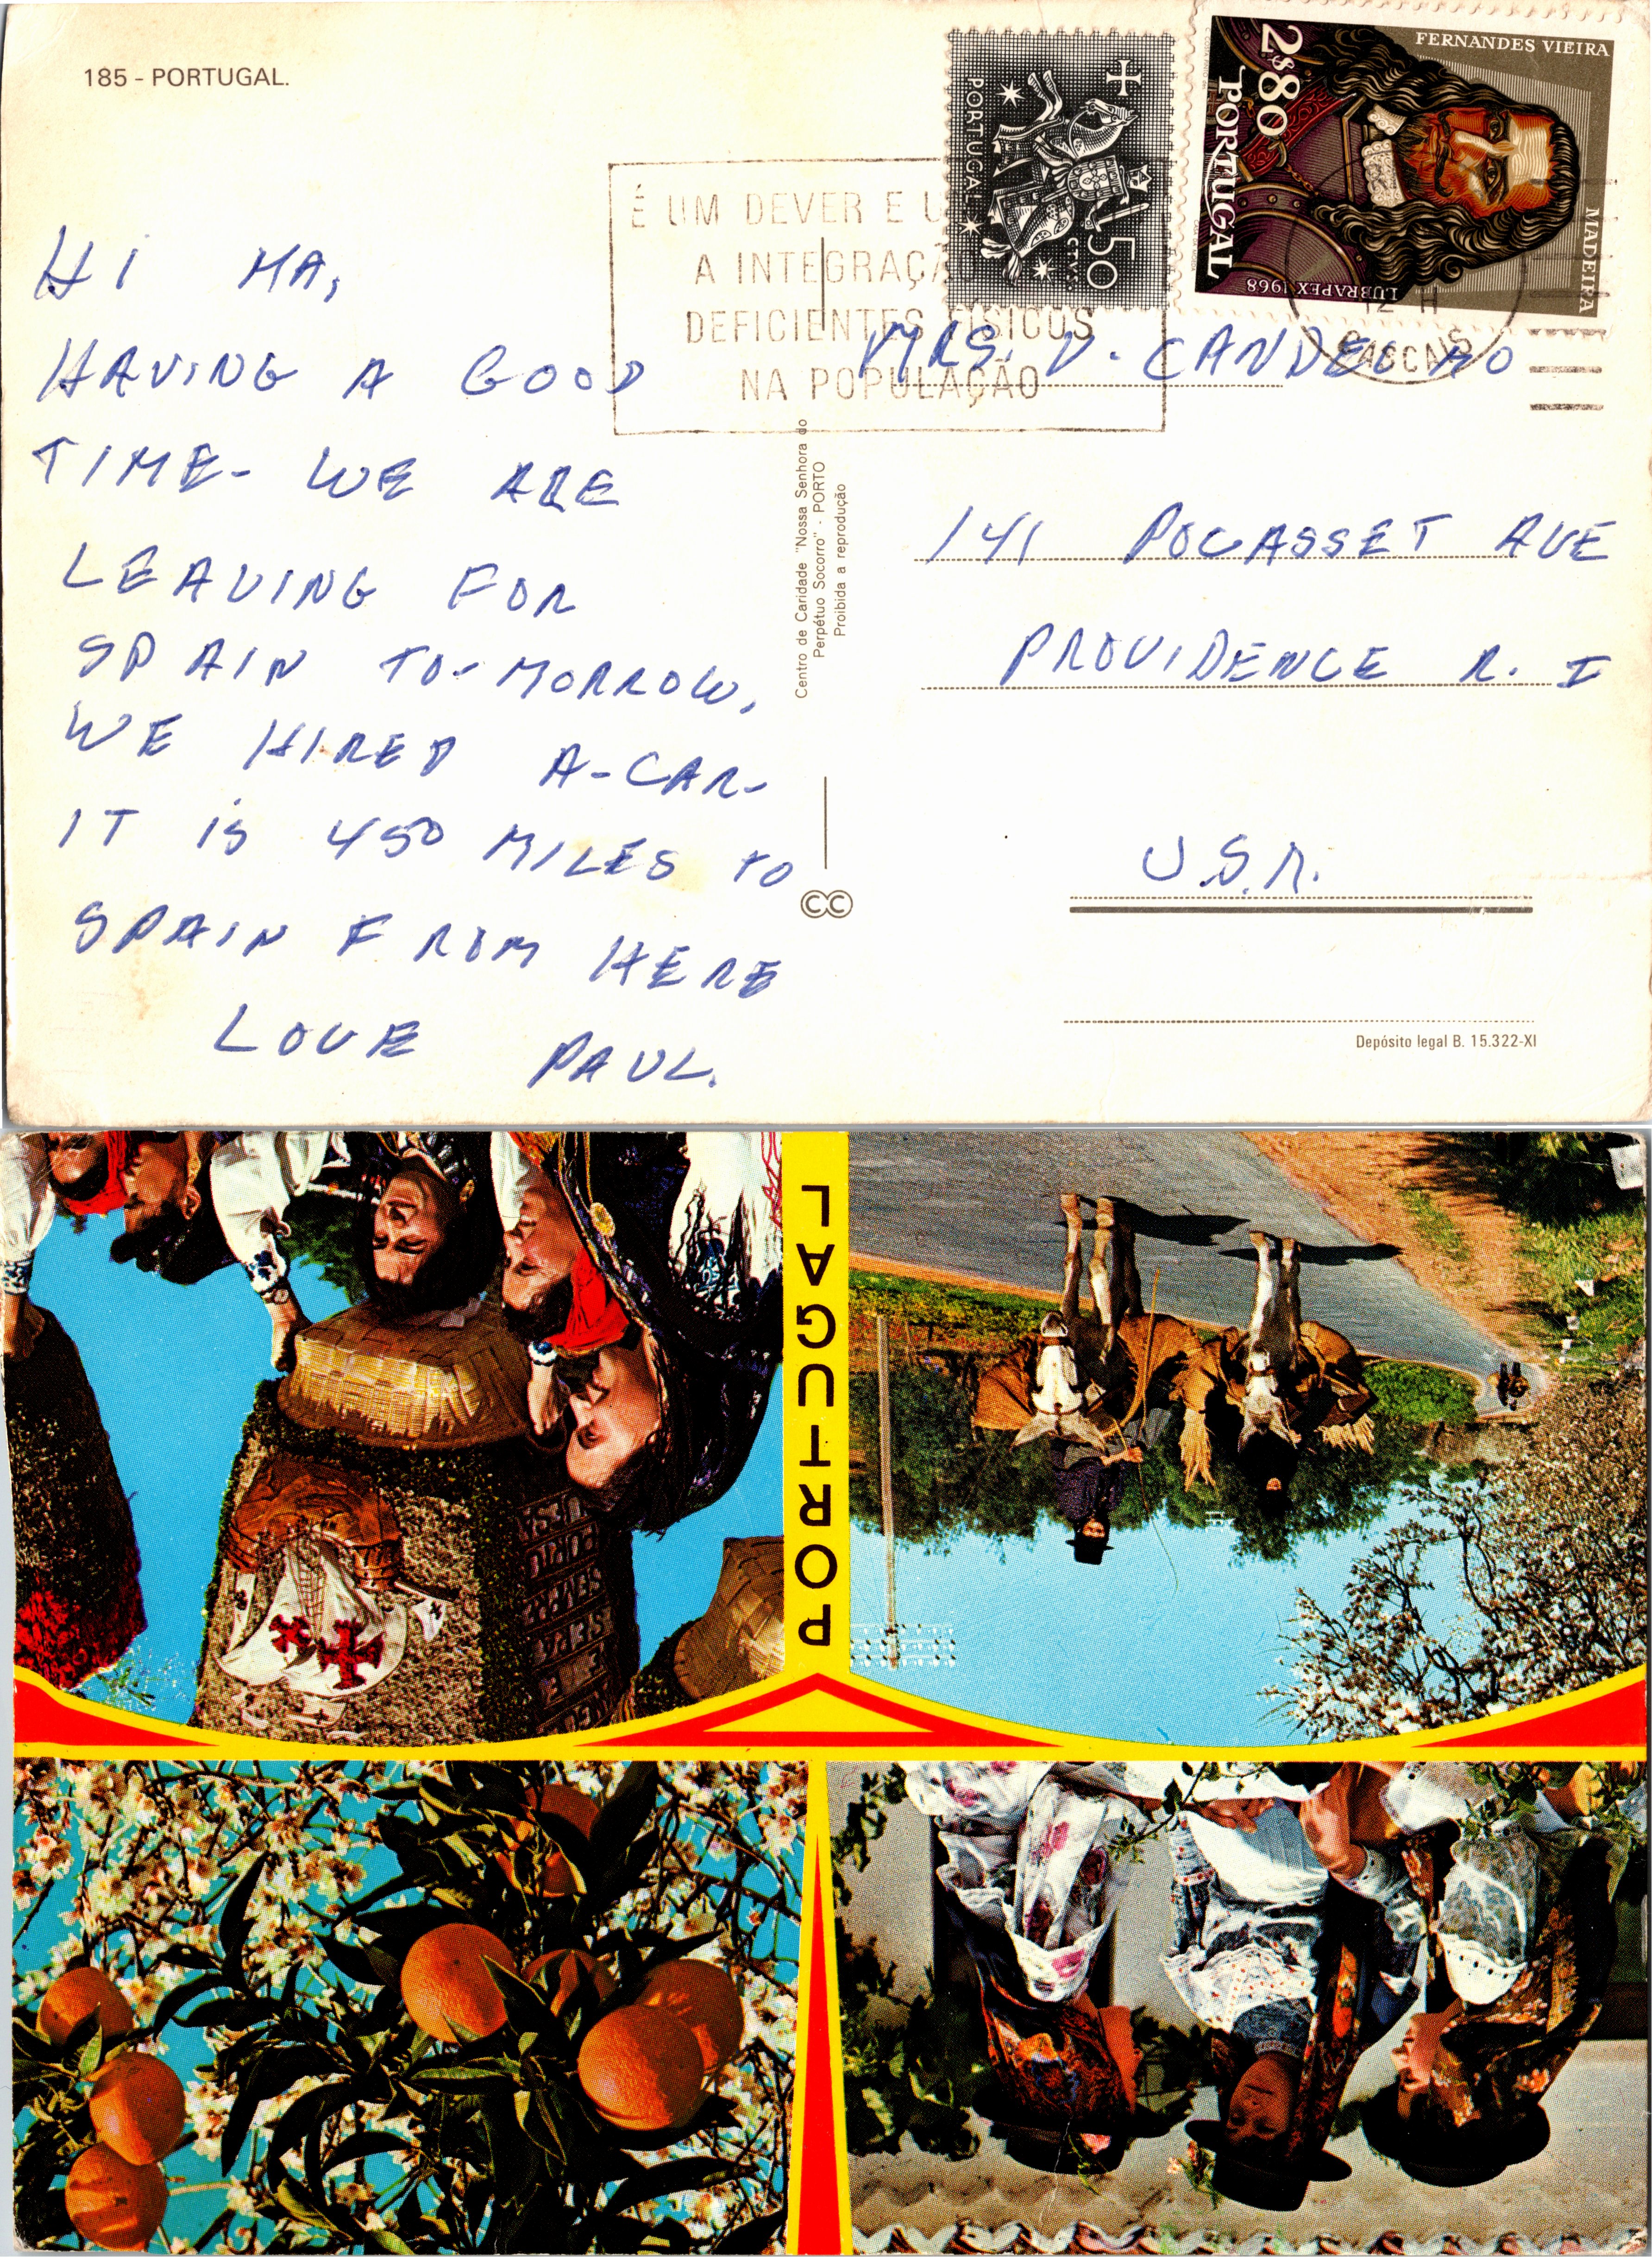 185 - PORTUGAL.
FERNANDES VIEIRA
MADEIRA
2$80
PORTUGAL
LUBRAPEX 1968
PORTUGAL
50
CTVS
É UM DEVER E U
A INTEGRAÇÃ
DEFICIENTES FÍSICOS
NA POPULAÇÃO
12 H
CASCAIS
HI MA,
HAVING A GOOD
TIME- WE ARE
LEAVING FOR
SPAIN TO-MORROW,
WE HIRED A-CAR-
IT IS 450 MILES TO
SPAIN FROM HERE
LOVE PAUL.
Centro de Caridade "Nossa Senhora do
Perpétuo Socorro" - PORTO
Proibida a reprodução
CC
MRS. D.
141 POCASSET AVE
PROVIDENCE R. I
U.S.A.
Depósito legal B. 15.322-XI
PORTUGAL